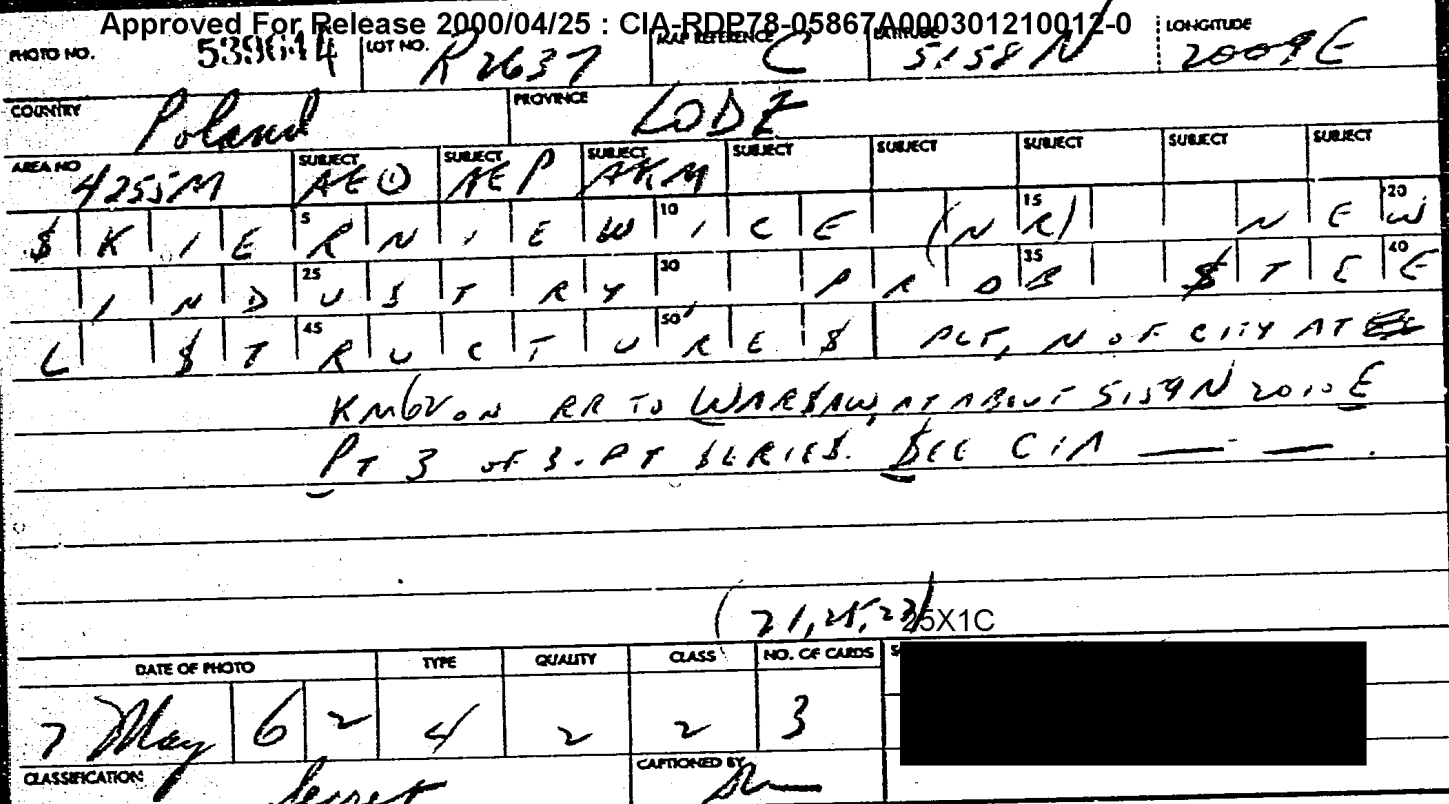 Approved For Release 2000/04/25 : CIA-RDP78-05867A000301210012-0
PHOTO NO. 539614 LOT NO. R2637 MAP REFERENCE C LATITUDE 5158N LONGITUDE 2009E
COUNTRY Poland PROVINCE LODZ
AREA NO 4255M SUBJECT AEO SUBJECT AEP SUBJECT AKM SUBJECT SUBJECT SUBJECT SUBJECT SUBJECT
5 10 15 20
$KIERNIEWICE (NR) NEW
25 30 35 40
INDUSTRY PROB $TEE
45 50
L $TRUCTURE$ PLT, N OF CITY AT
KM62 ON RR TO WARSAW, AT ABOUT 5159N 2010E
PT 3 OF 3-PT SERIES. SEE CIA — — .
(21,25,23) 25X1C
DATE OF PHOTO TYPE QUALITY CLASS NO. OF CARDS
7 May 62 4 2 2 3
CLASSIFICATION Secret CAPTIONED BY